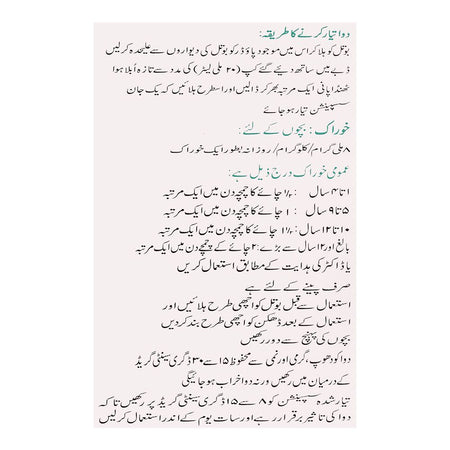 دوا تیار کرنے کا طریقہ:
بوتل کو ہلا کر اس میں موجود پاؤڈر کو بوتل کی دیواروں سے علیحدہ کر لیں
ڈبے میں ساتھ دیئے گئے کپ (۲۰ ملی لیٹر) کی مدد سے تازہ اُبلا ہوا
ٹھنڈا پانی ایک مرتبہ بھر کر ڈالیں اور اسطرح ہلائیں کہ یک جان
سسپینشن تیار ہو جائے
خوراک : بچوں کے لئے:
۸ ملی گرام/ کلوگرام/ روزانہ بطور ایک خوراک
عمومی خوراک درج ذیل ہے:
۱ تا ۴ سال : ۱/۲ چائے کا چمچہ دن میں ایک مرتبہ
۵ تا ۹ سال : ۱ چائے کا چمچہ دن میں ایک مرتبہ
۱۰ تا ۱۲ سال : ۱ ۱/۲ چائے کا چمچہ دن میں ایک مرتبہ
بالغ اور ۱۲ سال سے بڑے: ۲ چائے کے چمچے دن میں ایک مرتبہ
یا ڈاکٹر کی ہدایت کے مطابق استعمال کریں
صرف پینے کے لئے ہے
استعمال سے قبل بوتل کو اچھی طرح ہلائیں اور
استعمال کے بعد ڈھکن کو اچھی طرح بند کر دیں
بچوں کی پہنچ سے دور رکھیں
دوا کو دھوپ، گرمی اور نمی سے محفوظ ۱۵ سے ۳۰ ڈگری سینٹی گریڈ
کے درمیان میں رکھیں ورنہ دوا خراب ہو جائیگی
تیار شدہ سسپینشن کو ۸ سے ۱۵ ڈگری سینٹی گریڈ پر رکھیں تا کہ
دوا کی تاثیر برقرار رہے اور سات یوم کے اندر استعمال کر لیں